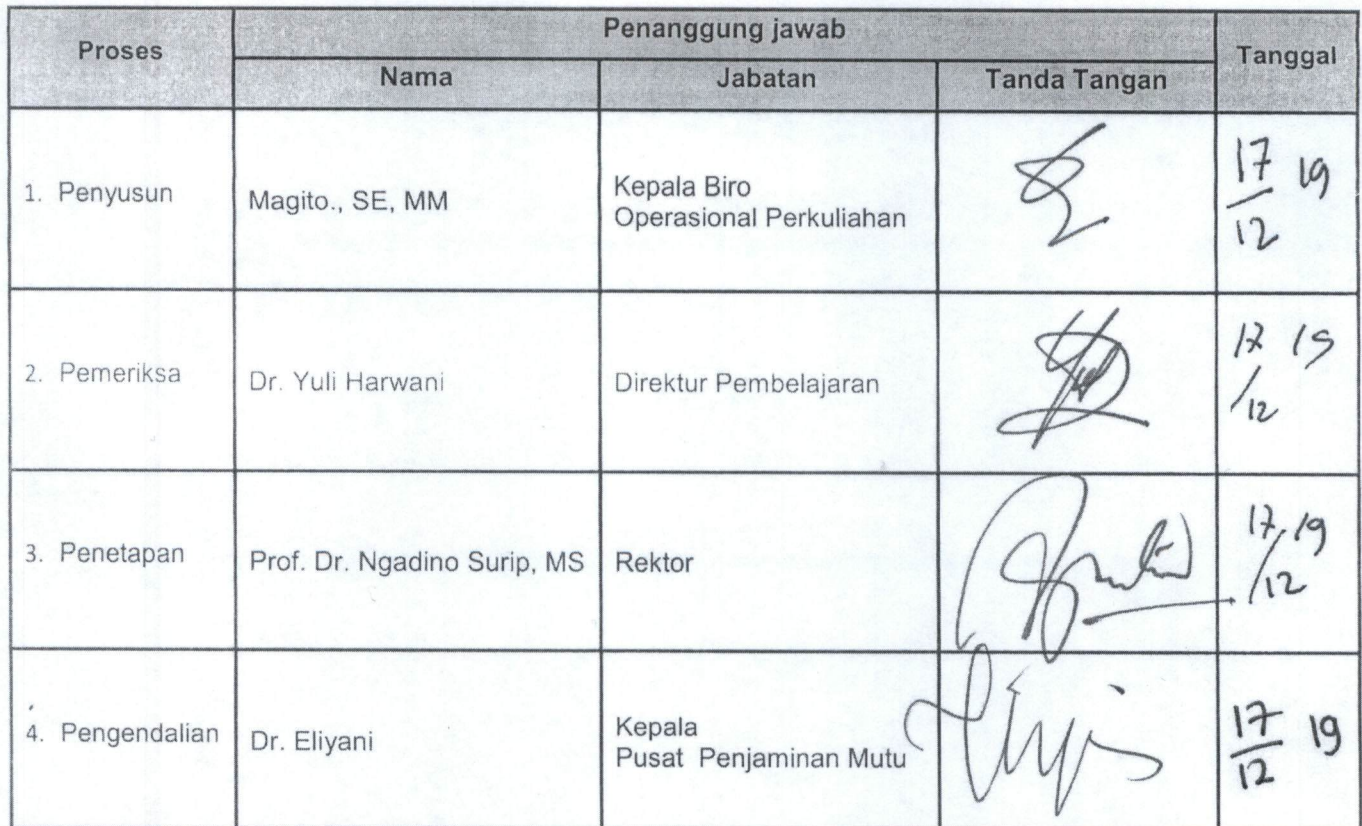 Proses
Penanggung jawab
Tanggal
Nama
Jabatan
Tanda Tangan
1. Penyusun
Magito., SE, MM
Kepala Biro
Operasional Perkuliahan
17/12 19
2. Pemeriksa
Dr. Yuli Harwani
Direktur Pembelajaran
17/12 19
3. Penetapan
Prof. Dr. Ngadino Surip, MS
Rektor
17/12 19
4. Pengendalian
Dr. Eliyani
Kepala
Pusat Penjaminan Mutu
17/12 19